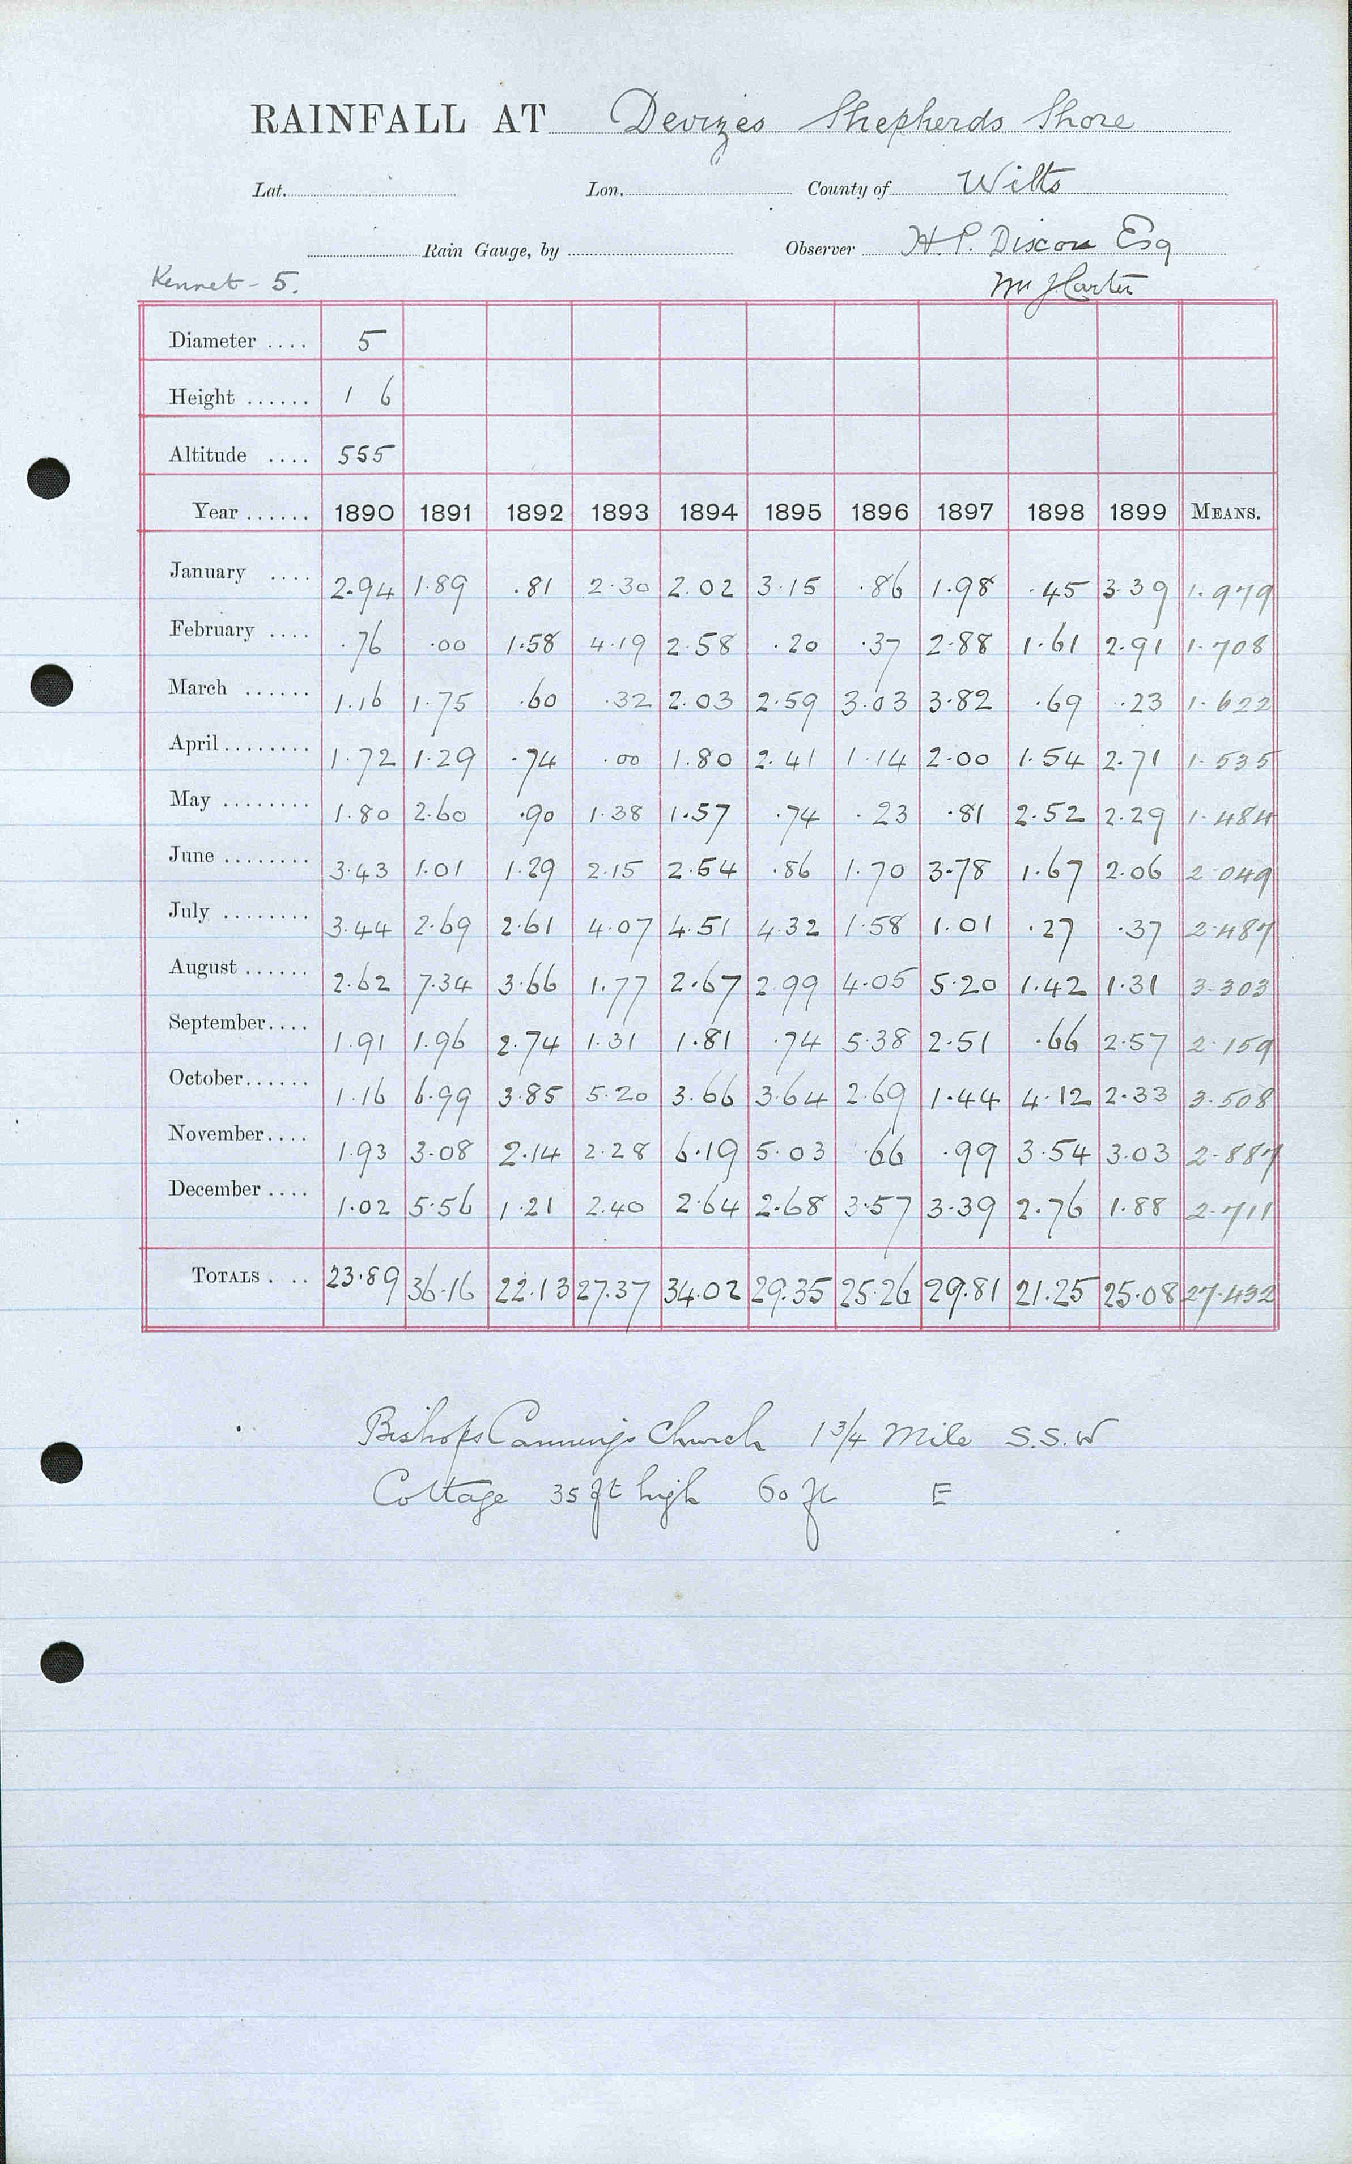 RAINFALL AT Devizes Shepherds Shore
Lat. Lon. County of Wilts
Rain Gauge, by Observer H.P. Discon Esq
Kennet - 5. Mr J Carter
Diameter .... 5
Height ...... 1 6
Altitude .... 555
Year ...... 1890 1891 1892 1893 1894 1895 1896 1897 1898 1899 MEANS.
January .... 2.94 1.89 .81 2.30 2.02 3.15 .86 1.98 .45 3.39 1.979
February .... .76 .00 1.58 4.19 2.58 .20 .37 2.88 1.61 2.91 1.708
March ...... 1.16 1.75 .60 .32 2.03 2.59 3.03 3.82 .69 .23 1.622
April ........ 1.72 1.29 .74 .00 1.80 2.41 1.14 2.00 1.54 2.71 1.535
May ........ 1.80 2.60 .90 1.38 1.57 .74 .23 .81 2.52 2.29 1.484
June ........ 3.43 1.01 1.29 2.15 2.54 .86 1.70 3.78 1.67 2.06 2.049
July ........ 3.44 2.69 2.61 4.07 4.51 4.32 1.58 1.01 .27 .37 2.487
August ...... 2.62 7.34 3.66 1.77 2.67 2.99 4.05 5.20 1.42 1.31 3.303
September.... 1.91 1.96 2.74 1.31 1.81 .74 5.38 2.51 .66 2.57 2.159
October...... 1.16 6.99 3.85 5.20 3.66 3.64 2.69 1.44 4.12 2.33 3.508
November.... 1.93 3.08 2.14 2.28 6.19 5.03 .66 .99 3.54 3.03 2.887
December .... 1.02 5.56 1.21 2.40 2.64 2.68 3.57 3.39 2.76 1.88 2.711
TOTALS . .. 23.89 36.16 22.13 27.37 34.02 29.35 25.26 29.81 21.25 25.08 27.432
Bishops Cannings Church 1 3/4 Mile S.S.W
Cottage 35 ft high 60 ft E